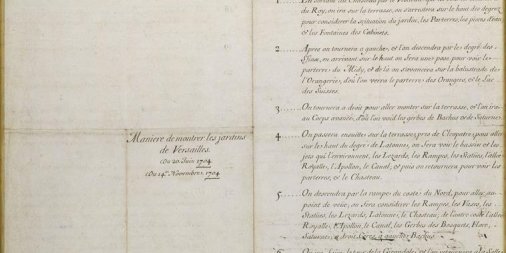 Maniere de montrer les jardins
de Versailles.
Du 20. Juin 1704
Du 24.e Novembre 1704
1
du Roy, on ira sur la terrasse, on s'arrestera sur le haut des degrez
pour considerer la situation du jardin, les Parterres, les pieces d'eau
et les Fontaines des Cabinets.
2 Apres on tournera a gauche, et l'on descendra par le degré des
Sfinx, en arrivant sur le haut on fera une pose pour voir le
parterre du Midy, et de la on s'avancera sur la balustrade de
l'Orangerie, d'où l'on verra le parterre des Orangers, et le Lac
des Suisses.
3 On tournera a droit pour aller monter sur la terrasse, et l'on ira
au Corps avancé, d'où l'on void les gerbes de Bachus et de Saturne.
4 On passera ensuitte sur la terrasse, pres de la Cleopatre, pour aller
sur les haut du degré de Latonne, on fera voir le bassin et les
jets qui l'environnent, les Lezards, les Rampes, les Statües, l'allée
Royalle, l'Apollon, le Canal, et puis on retournera pour voir les
parterres, et le Chasteau.
5 On descendra par la rampe du costé du Nord, pour aller au
point de veüe, on fera considerer les Rampes, les Vases, les
Statües, les Lezards, Latonne, le Chasteau; de l'autre costé l'allée
Royalle, l'Apollon, le Canal, les Gerbes des Bosquets, Flore,
Saturne, a droit Ceres a gauche Bachus
6